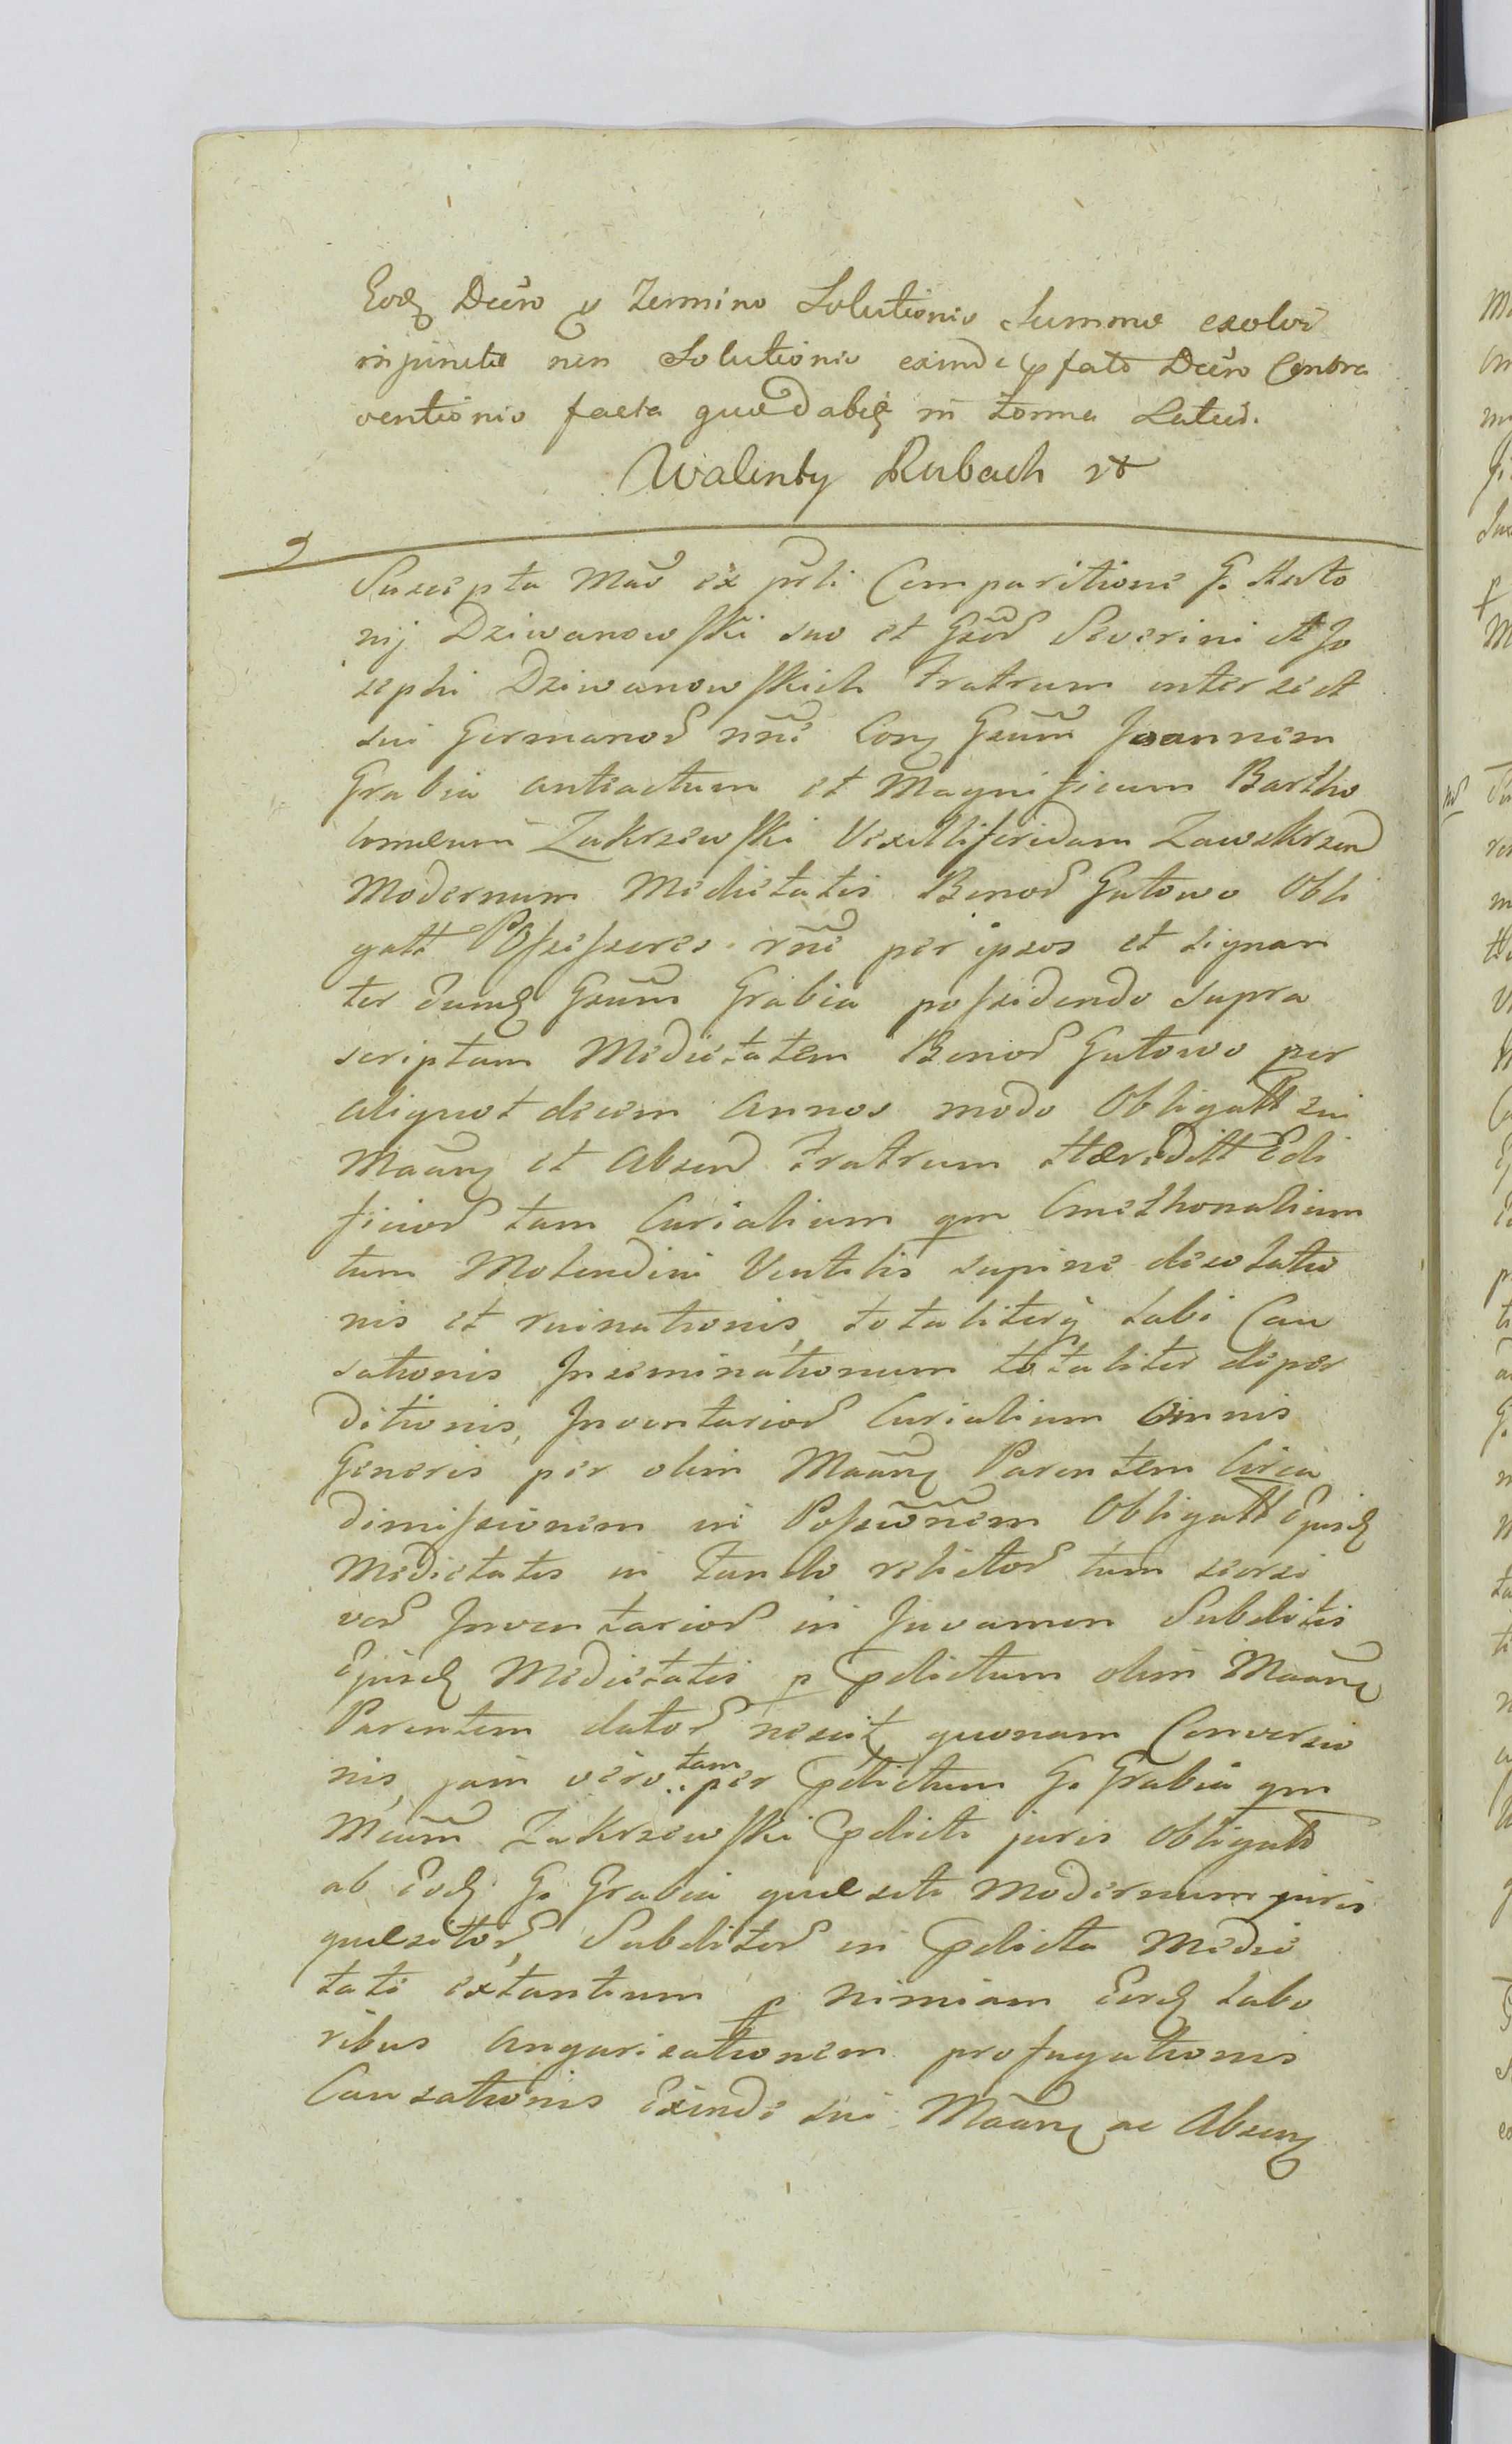 Eod Decro p Termino Solutionis Summae exolvi
injunctae non Solutionis exinde pfato Decro Contra
ventionis facta quaedabit in forma Latiori.
Walenty Rubach
Suscepta Mao ex prli Comparitione G. Anto
nij Dziwanowski suo et Gsor Severini et Jo
sephi Dziwanowskich Fratrum inter se et
sui Germanor nne Con Gsum Joannem
Grabia anteactum et Magnificum Bartho
lomeum Zakrzewski Vexilliferidam Zawskrzen
Modernum Medietatis Bonor Gutowo Obli
gatt Possessores rne per ipsos et signan
ter dum Gsum Grabia possidendo supra
scriptam Medietatem Bonor Gutowo per
aliquot decem annos modo Obligatt sui
Maan et Absen Fratrum Haereditt Edi
ficior tam Curialium qm Cmethonalium
tum Molendini Ventilis supine desolatio
nis et ruinationis, totaliterq labi Cau
sationis Inseminationum totaliter deper
ditionis, Inventarior Curialium Omnis
Generis per olim Maan Parentem Circa
dimissionem in Possionem Obligatt Ejusd
Medietatis in fundo relictor tum seorsi
vor Inventarior in Juvamen Subditis
Ejusd Medietatis p pdictum olim Maan
Parentem dator nescit quonam Conversio
nis, jam vero tam per pdictum G. Grabia qm
Mcum Zakrzewski pdicti juris obligatt
ab Eod G. Grabia quaesiti Modernum juris
quaesitor, Subditor in pdicta Medie
tate extantium p nimiam Eord labo
ribus angarisationem profugationis
Causationis Exinde sui Maan ac Absen